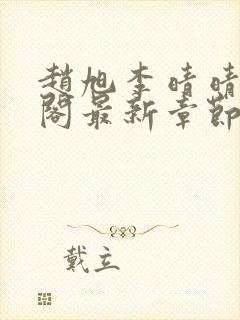 趙旭李晴晴
閣最新章節
戴立